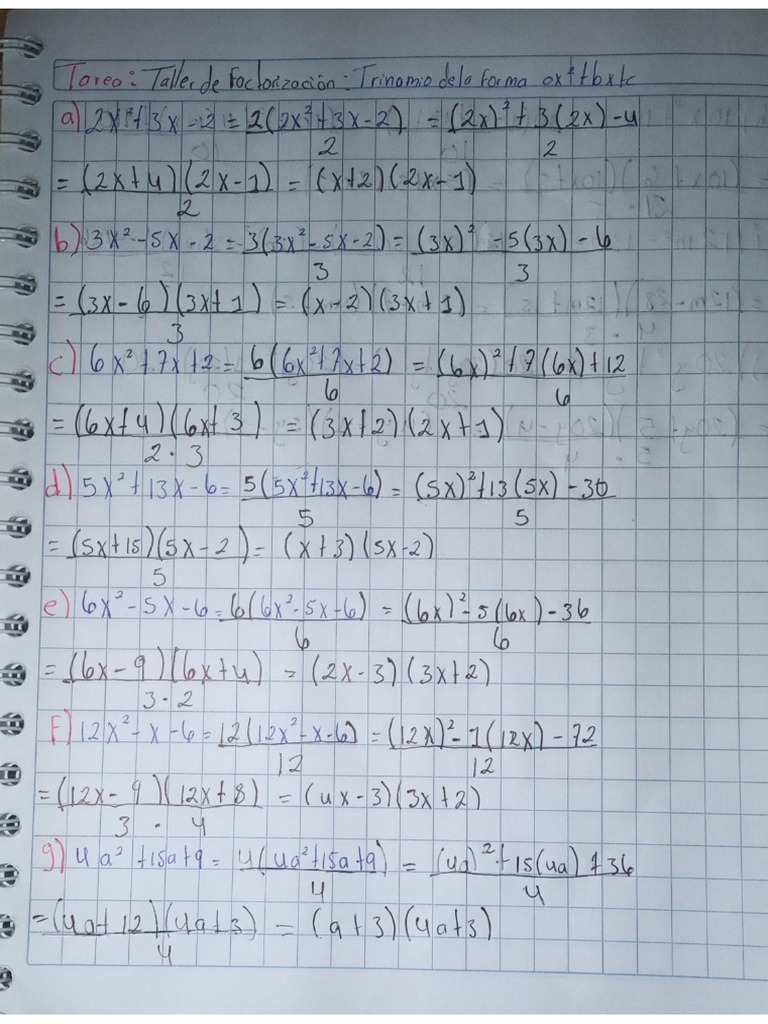 Tarea: Taller de Factorización: Trinomio de la forma ax²+bx+c
a) 2x²+3x-2 = 2(2x²+3x-2)/2 = (2x)²+3(2x)-4/2
= (2x+4)(2x-1)/2 = (x+2)(2x-1)
b) 3x²-5x-2 = 3(3x²-5x-2)/3 = (3x)²-5(3x)-6/3
= (3x-6)(3x+1)/3 = (x-2)(3x+1)
c) 6x²+7x+2 = 6(6x²+7x+2)/6 = (6x)²+7(6x)+12/6
= (6x+4)(6x+3)/2·3 = (3x+2)(2x+1)
d) 5x²+13x-6 = 5(5x²+13x-6)/5 = (5x)²+13(5x)-30/5
= (5x+15)(5x-2)/5 = (x+3)(5x-2)
e) 6x²-5x-6 = 6(6x²-5x-6)/6 = (6x)²-5(6x)-36/6
= (6x-9)(6x+4)/3·2 = (2x-3)(3x+2)
F) 12x²-x-6 = 12(12x²-x-6)/12 = (12x)²-1(12x)-72/12
= (12x-9)(12x+8)/3·4 = (4x-3)(3x+2)
g) 4a²+15a+9 = 4(4a²+15a+9)/4 = (4a)²+15(4a)+36/4
= (4a+12)(4a+3)/4 = (a+3)(4a+3)